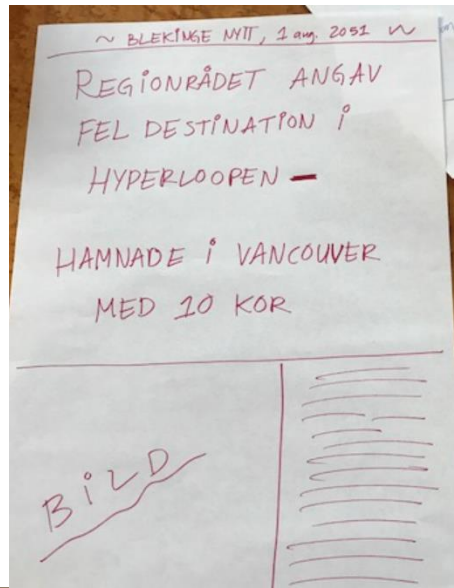 ~ BLEKINGE NYTT, 1 aug. 2051 ~
REGIONRÅDET ANGAV
FEL DESTINATION I
HYPERLOOPEN –
HAMNADE I VANCOUVER
MED 10 KOR
BILD